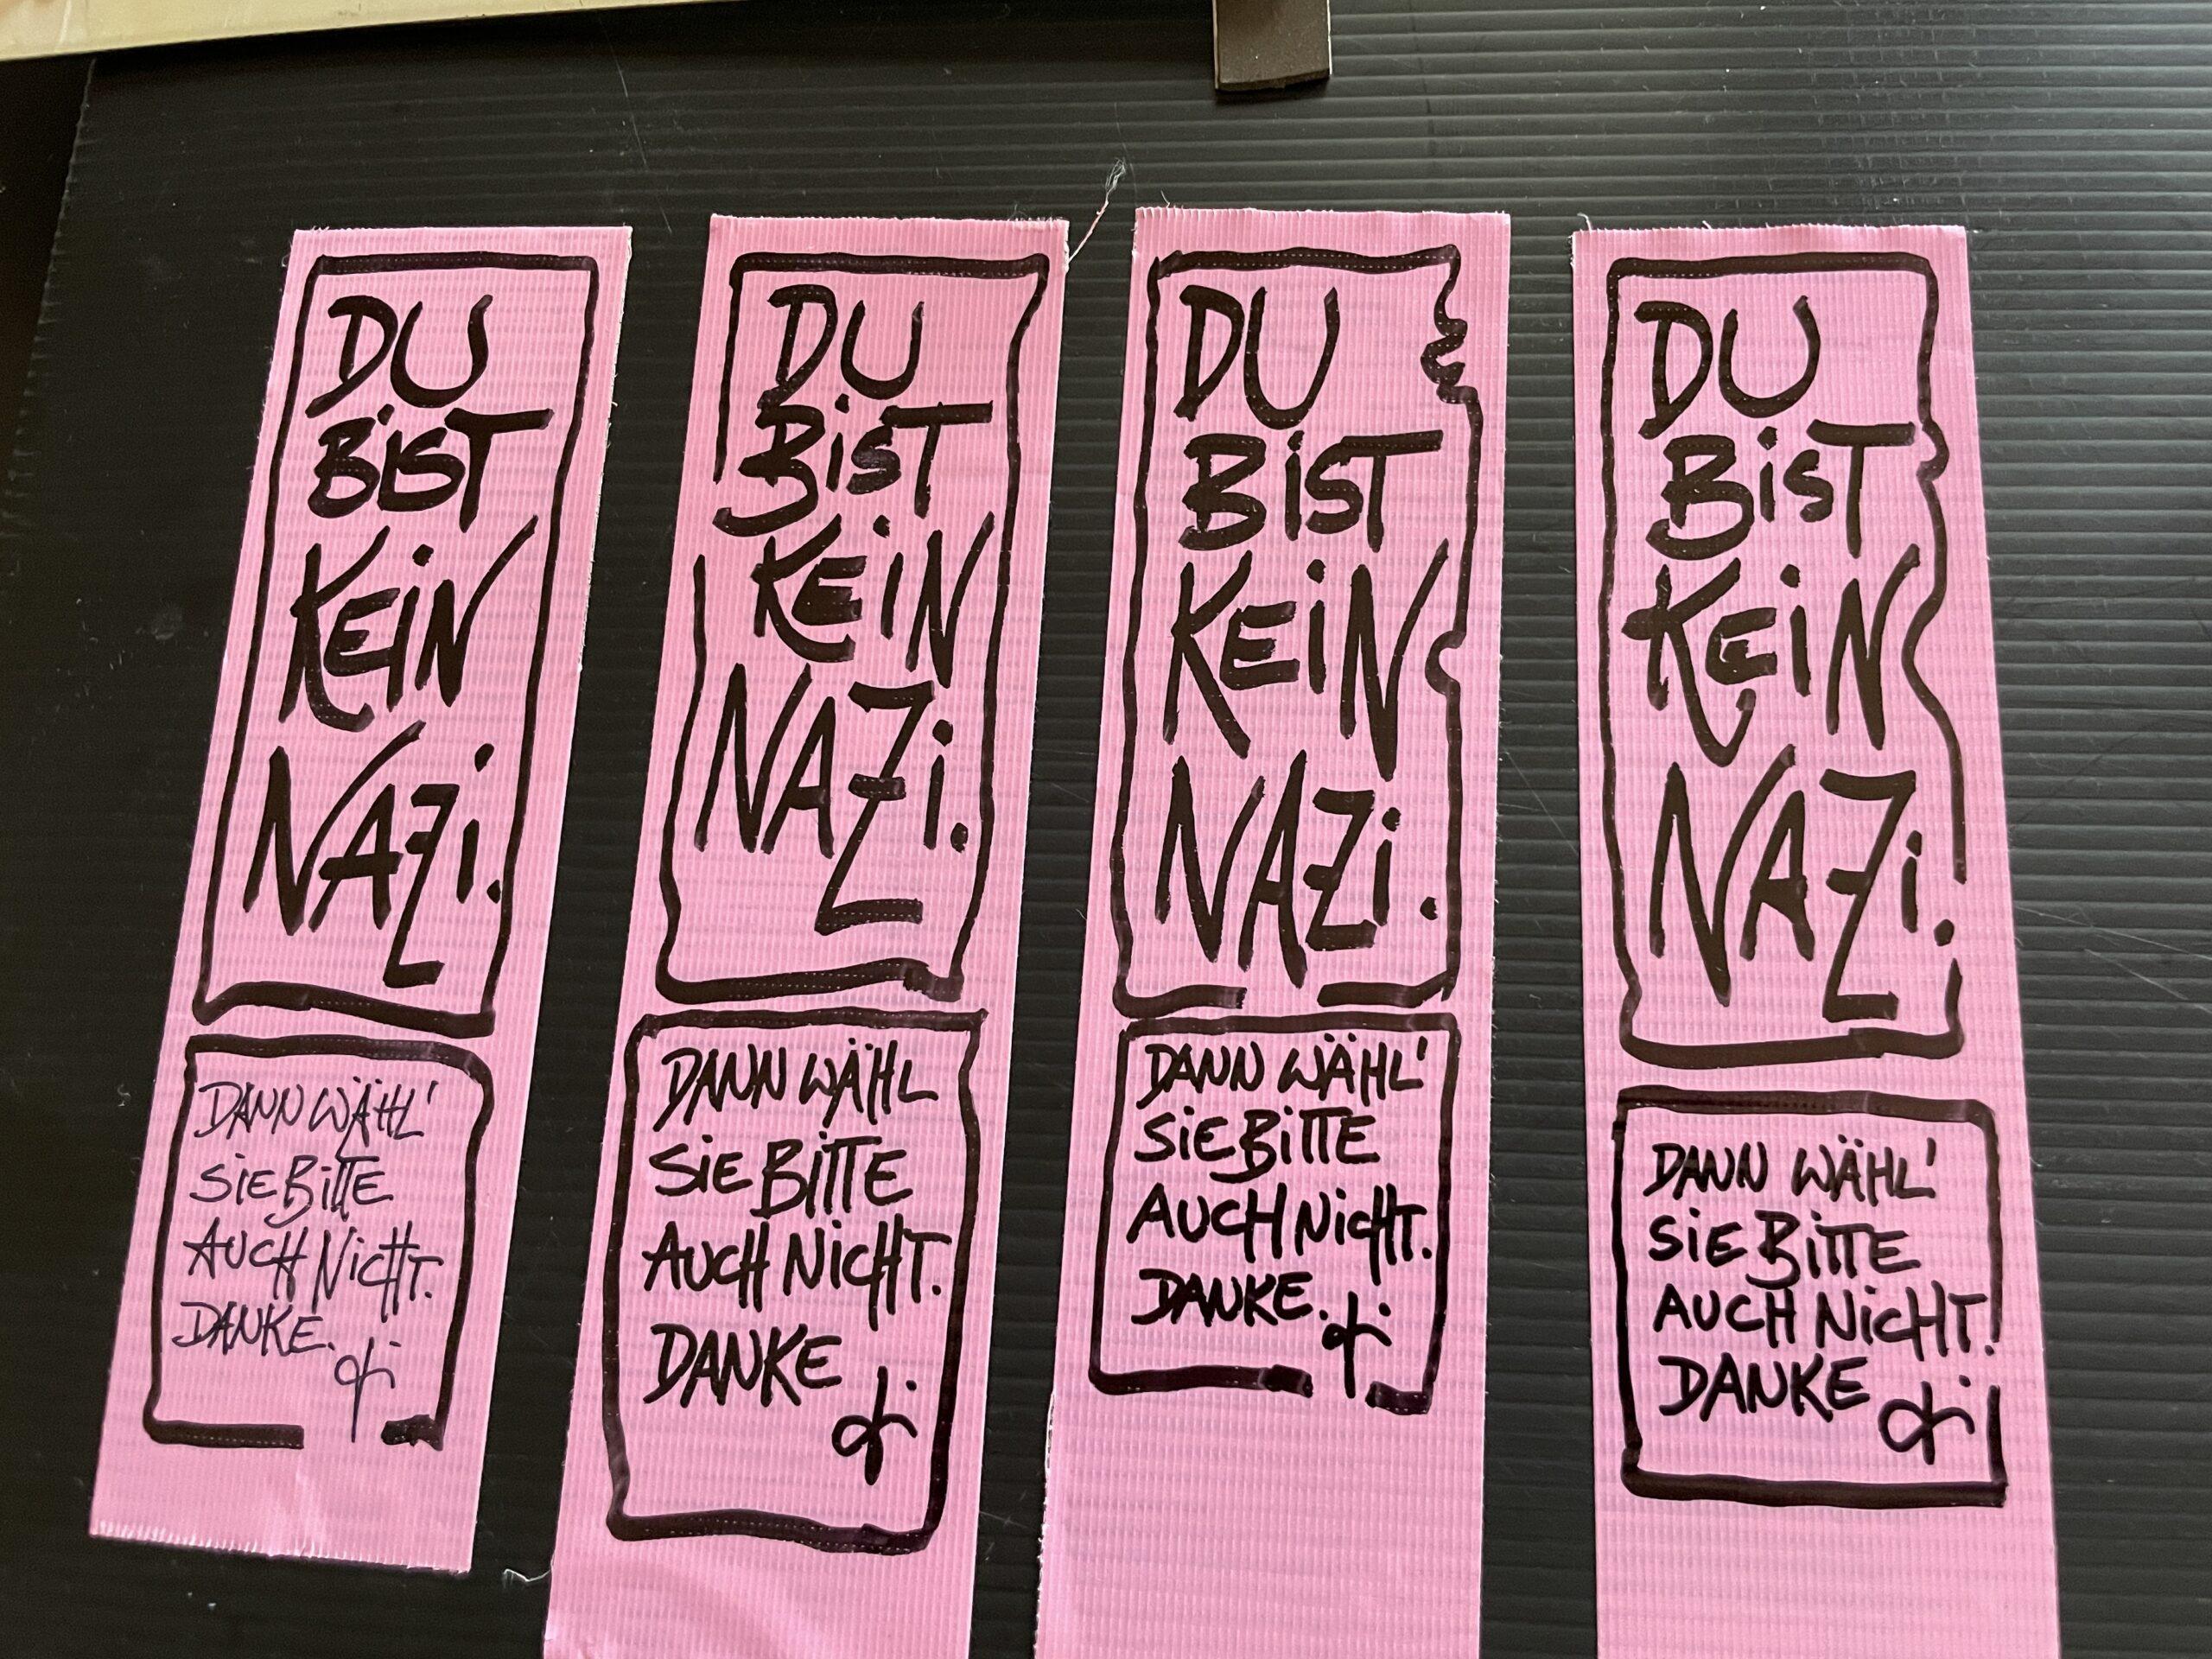 DU
BiST
KEiN
NAZi.
DANN WÄHL'
SiE BiTTE
AUCH NiCHT.
DANKE.
DU
BiST
KEiN
NAZi.
DANN WÄHL
SiE BiTTE
AUCH NiCHT.
DANKE
DU
BiST
KEiN
NAZi.
DANN WÄHL'
SiE BiTTE
AUCH NiCHT.
DANKE.
DU
BiST
KEiN
NAZi.
DANN WÄHL'
SiE BiTTE
AUCH NiCHT!
DANKE